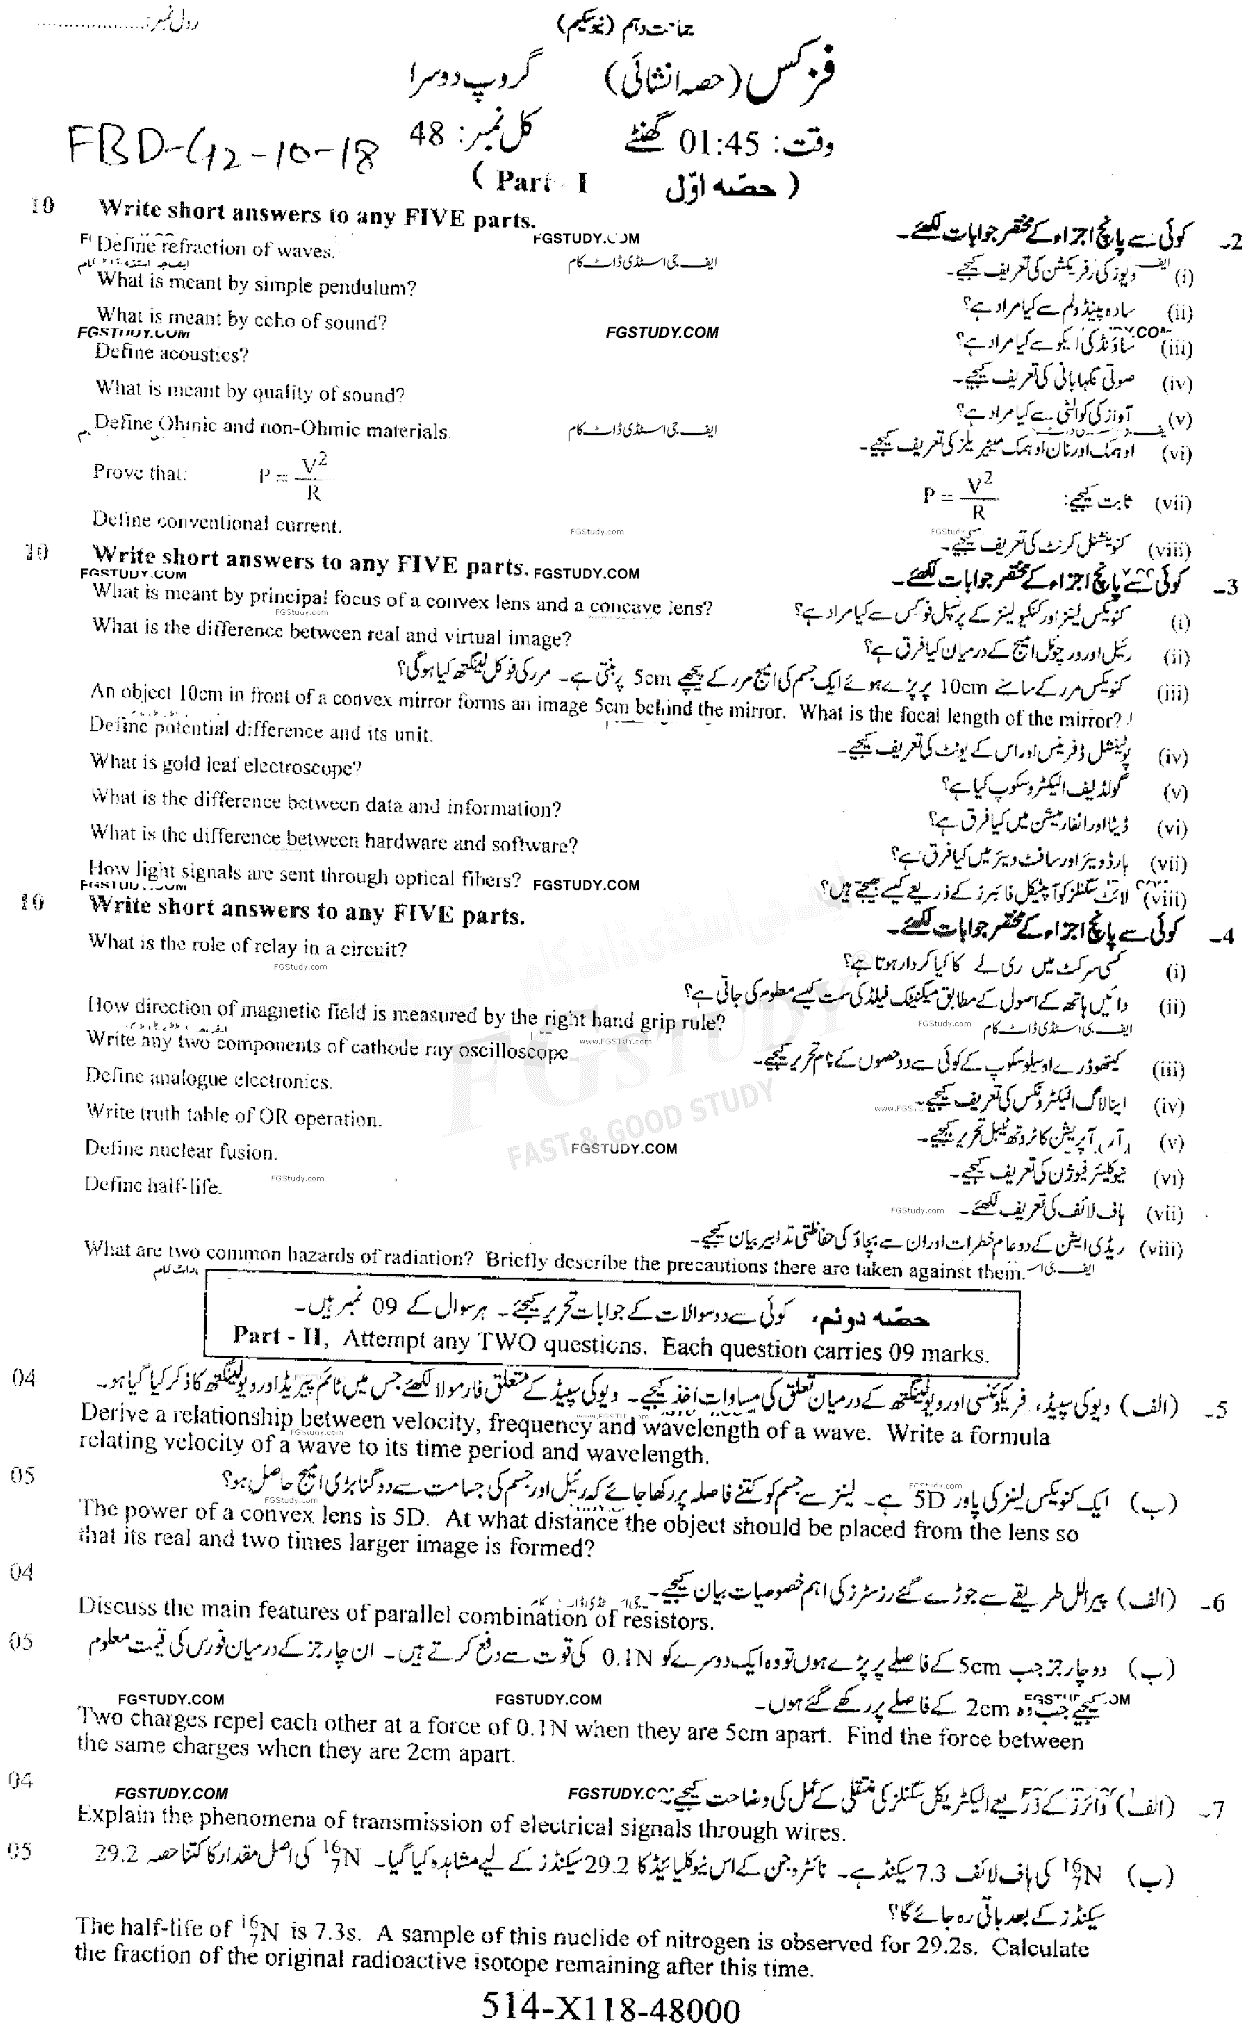 رول نمبر:
جماعت دہم (نیو سکیم)
فزکس (حصہ انشائی) گروپ دوسرا
وقت: 01:45 گھنٹے کل نمبر: 48
FBD-G12-10-18
(Part - I حصّہ اوّل)
10 Write short answers to any FIVE parts. 2- کوئی سے پانچ اجزاء کے مختصر جوابات لکھئے۔
FGSTUDY.COM
Define refraction of waves. (i) ویوز کی رفریکشن کی تعریف کیجیے۔
ایف جی اسٹڈی ڈاٹ کام
What is meant by simple pendulum? (ii) سادہ پینڈولم سے کیا مراد ہے؟
What is meant by echo of sound? (iii) ساؤنڈ کی ایکو سے کیا مراد ہے؟
FGSTUDY.COM FGSTUDY.COM
Define acoustics? (iv) صوتی نگہبانی کی تعریف کیجیے۔
What is meant by quality of sound? (v) آواز کی کوالٹی سے کیا مراد ہے؟
Define Ohmic and non-Ohmic materials. (vi) اوہمک اور نان اوہمک میٹیریلز کی تعریف کیجیے۔
ایف جی اسٹڈی ڈاٹ کام
Prove that: P = V²/R (vii) ثابت کیجیے: P = V²/R
Define conventional current. (viii) کنونشنل کرنٹ کی تعریف کیجیے۔
FGStudy.com
10 Write short answers to any FIVE parts. 3- کوئی سے پانچ اجزاء کے مختصر جوابات لکھئے۔
FGSTUDY.COM FGSTUDY.COM
What is meant by principal focus of a convex lens and a concave lens? (i) کنویکس لینز اور کنکیو لینز کے پرنسپل فوکس سے کیا مراد ہے؟
FGStudy.com
What is the difference between real and virtual image? (ii) رئیل اور ورچوئل امیج کے درمیان کیا فرق ہے؟
(iii) کنویکس مرر کے سامنے 10cm پر پڑے ہوئے ایک جسم کی امیج مرر کے پیچھے 5cm پر بنتی ہے۔ مرر کی فوکل لینگتھ کیا ہوگی؟
An object 10cm in front of a convex mirror forms an image 5cm behind the mirror. What is the focal length of the mirror?
Define potential difference and its unit. (iv) پوٹینشل ڈفرینس اور اس کے یونٹ کی تعریف کیجیے۔
What is gold leaf electroscope? (v) گولڈ لیف الیکٹروسکوپ کیا ہے؟
What is the difference between data and information? (vi) ڈیٹا اور انفارمیشن میں کیا فرق ہے؟
What is the difference between hardware and software? (vii) ہارڈ ویئر اور سافٹ ویئر میں کیا فرق ہے؟
How light signals are sent through optical fibers? (viii) لائٹ سگنلز کو آپٹیکل فائبرز کے ذریعے کیسے بھیجتے ہیں؟
FGSTUDY.COM FGSTUDY.COM
10 Write short answers to any FIVE parts. 4- کوئی سے پانچ اجزاء کے مختصر جوابات لکھئے۔
What is the role of relay in a circuit? (i) کسی سرکٹ میں ری لے کا کیا کردار ہوتا ہے؟
FGStudy.com
How direction of magnetic field is measured by the right hand grip rule? (ii) دائیں ہاتھ کے اصول کے مطابق میگنیٹک فیلڈ کی سمت کیسے معلوم کی جاتی ہے؟
www.FGStudy.com FGStudy.com ایف جی اسٹڈی ڈاٹ کام
Write any two components of cathode ray oscilloscope. (iii) کیتھوڈ رے اوسیلوسکوپ کے کوئی سے دو حصوں کے نام تحریر کیجیے۔
Define analogue electronics. (iv) اینالاگ الیکٹرونکس کی تعریف کیجیے۔
Write truth table of OR operation. (v) آر آپریشن کا ٹروتھ ٹیبل تحریر کیجیے۔
Define nuclear fusion. (vi) نیوکلیئر فیوژن کی تعریف کیجیے۔
FGSTUDY
FAST & GOOD STUDY
FGSTUDY.COM
Define half-life. (vii) ہاف لائف کی تعریف لکھئے۔
FGStudy.com FGStudy.com
(viii) ریڈی ایشن کے دو عام خطرات اور ان سے بچاؤ کی حفاظتی تدابیر بیان کیجیے۔
What are two common hazards of radiation? Briefly describe the precautions there are taken against them.
حصّہ دوئم، کوئی سے دو سوالات کے جوابات تحریر کیجئے۔ ہر سوال کے 09 نمبر ہیں۔
Part - II, Attempt any TWO questions. Each question carries 09 marks.
04 5- (الف) ویو کی سپیڈ، فریکوئنسی اور ویولینگتھ کے درمیان تعلق کی مساوات اخذ کیجیے۔ ویو کی سپیڈ کے متعلق فارمولا لکھئے جس میں ٹائم پیریڈ اور ویولینگتھ کا ذکر کیا گیا ہو۔
Derive a relationship between velocity, frequency and wavelength of a wave. Write a formula
relating velocity of a wave to its time period and wavelength.
05 (ب) ایک کنویکس لینز کی پاور 5D ہے۔ لینز سے جسم کو کتنے فاصلہ پر رکھا جائے کہ رئیل اور جسم کی جسامت سے دو گنا بڑی امیج حاصل ہو؟
The power of a convex lens is 5D. At what distance the object should be placed from the lens so
that its real and two times larger image is formed?
04 6- (الف) پیرالل طریقے سے جوڑے گئے رزسٹرز کی اہم خصوصیات بیان کیجیے۔
Discuss the main features of parallel combination of resistors.
05 (ب) دو چارجز جب 5cm کے فاصلے پر پڑے ہوں تو وہ ایک دوسرے کو 0.1N کی قوت سے دفع کرتے ہیں۔ ان چارجز کے درمیان فورس کی قیمت معلوم
کیجیے جب وہ 2cm کے فاصلے پر رکھے گئے ہوں۔
FGSTUDY.COM FGSTUDY.COM
Two charges repel each other at a force of 0.1N when they are 5cm apart. Find the force between
the same charges when they are 2cm apart.
04 7- (الف) وائرز کے ذریعے الیکٹریکل سگنلز کی منتقلی کے عمل کی وضاحت کیجیے۔
FGSTUDY.COM
Explain the phenomena of transmission of electrical signals through wires.
05 (ب) ¹⁶₇N کی ہاف لائف 7.3 سیکنڈ ہے۔ نائٹروجن کے اس نیوکلیائیڈ کا 29.2 سیکنڈز کے لیے مشاہدہ کیا گیا۔ ¹⁶₇N کی اصل مقدار کا کتنا حصہ 29.2
سیکنڈز کے بعد باقی رہ جائے گا؟
The half-life of ¹⁶₇N is 7.3s. A sample of this nuclide of nitrogen is observed for 29.2s. Calculate
the fraction of the original radioactive isotope remaining after this time.
514-X118-48000